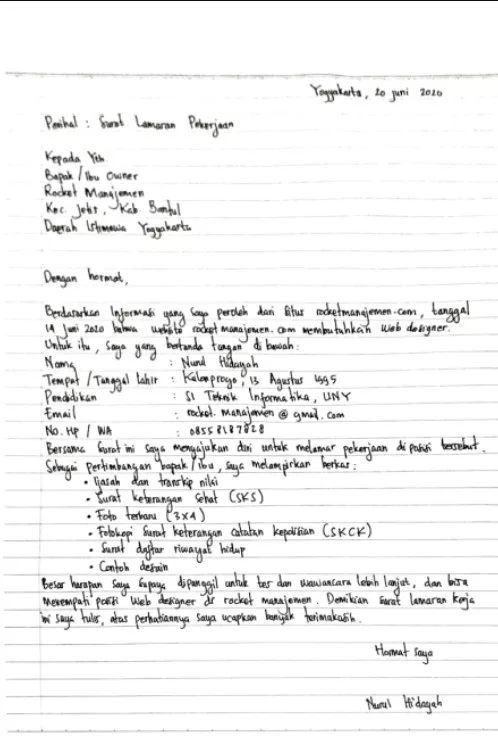 Yogyakarta, 20 juni 2020
Perihal : Surat Lamaran Pekerjaan
Kepada Yth.
Bapak / Ibu Owner
Rocket Manajemen
Kec. Jetis, Kab. Bantul
Daerah Istimewa Yogyakarta
Dengan hormat,
Berdasarkan Informasi yang saya peroleh dari situs rocketmanajemen.com, tanggal
14 Juni 2020 bahwa website rocket manajemen.com membutuhkan web designer.
Untuk itu, saya yang bertanda tangan di bawah :
Nama : Nurul Hidayah
Tempat / Tanggal lahir : Kulonprogo, 13 Agustus 1995
Pendidikan : S1 Teknik Informatika, UNY
Email : rocket.manajemen@gmail.com
No. HP / WA : 08558187828
Bersama surat ini saya mengajukan diri untuk melamar pekerjaan di posisi tersebut.
Sebagai pertimbangan bapak / ibu, saya melampirkan berkas :
• Ijasah dan transkip nilai
• Surat keterangan sehat (SKS)
• Foto terbaru (3x4)
• Fotokopi surat keterangan catatan kepolisian (SKCK)
• Surat daftar riwayat hidup
• Contoh desain
Besar harapan saya supaya dipanggil untuk tes dan wawancara lebih lanjut, dan bisa
menempati posisi web designer di rocket manajemen. Demikian surat lamaran kerja
ini saya tulis, atas perhatiannya saya ucapkan banyak terimakasih.
Hormat saya
Nurul Hidayah